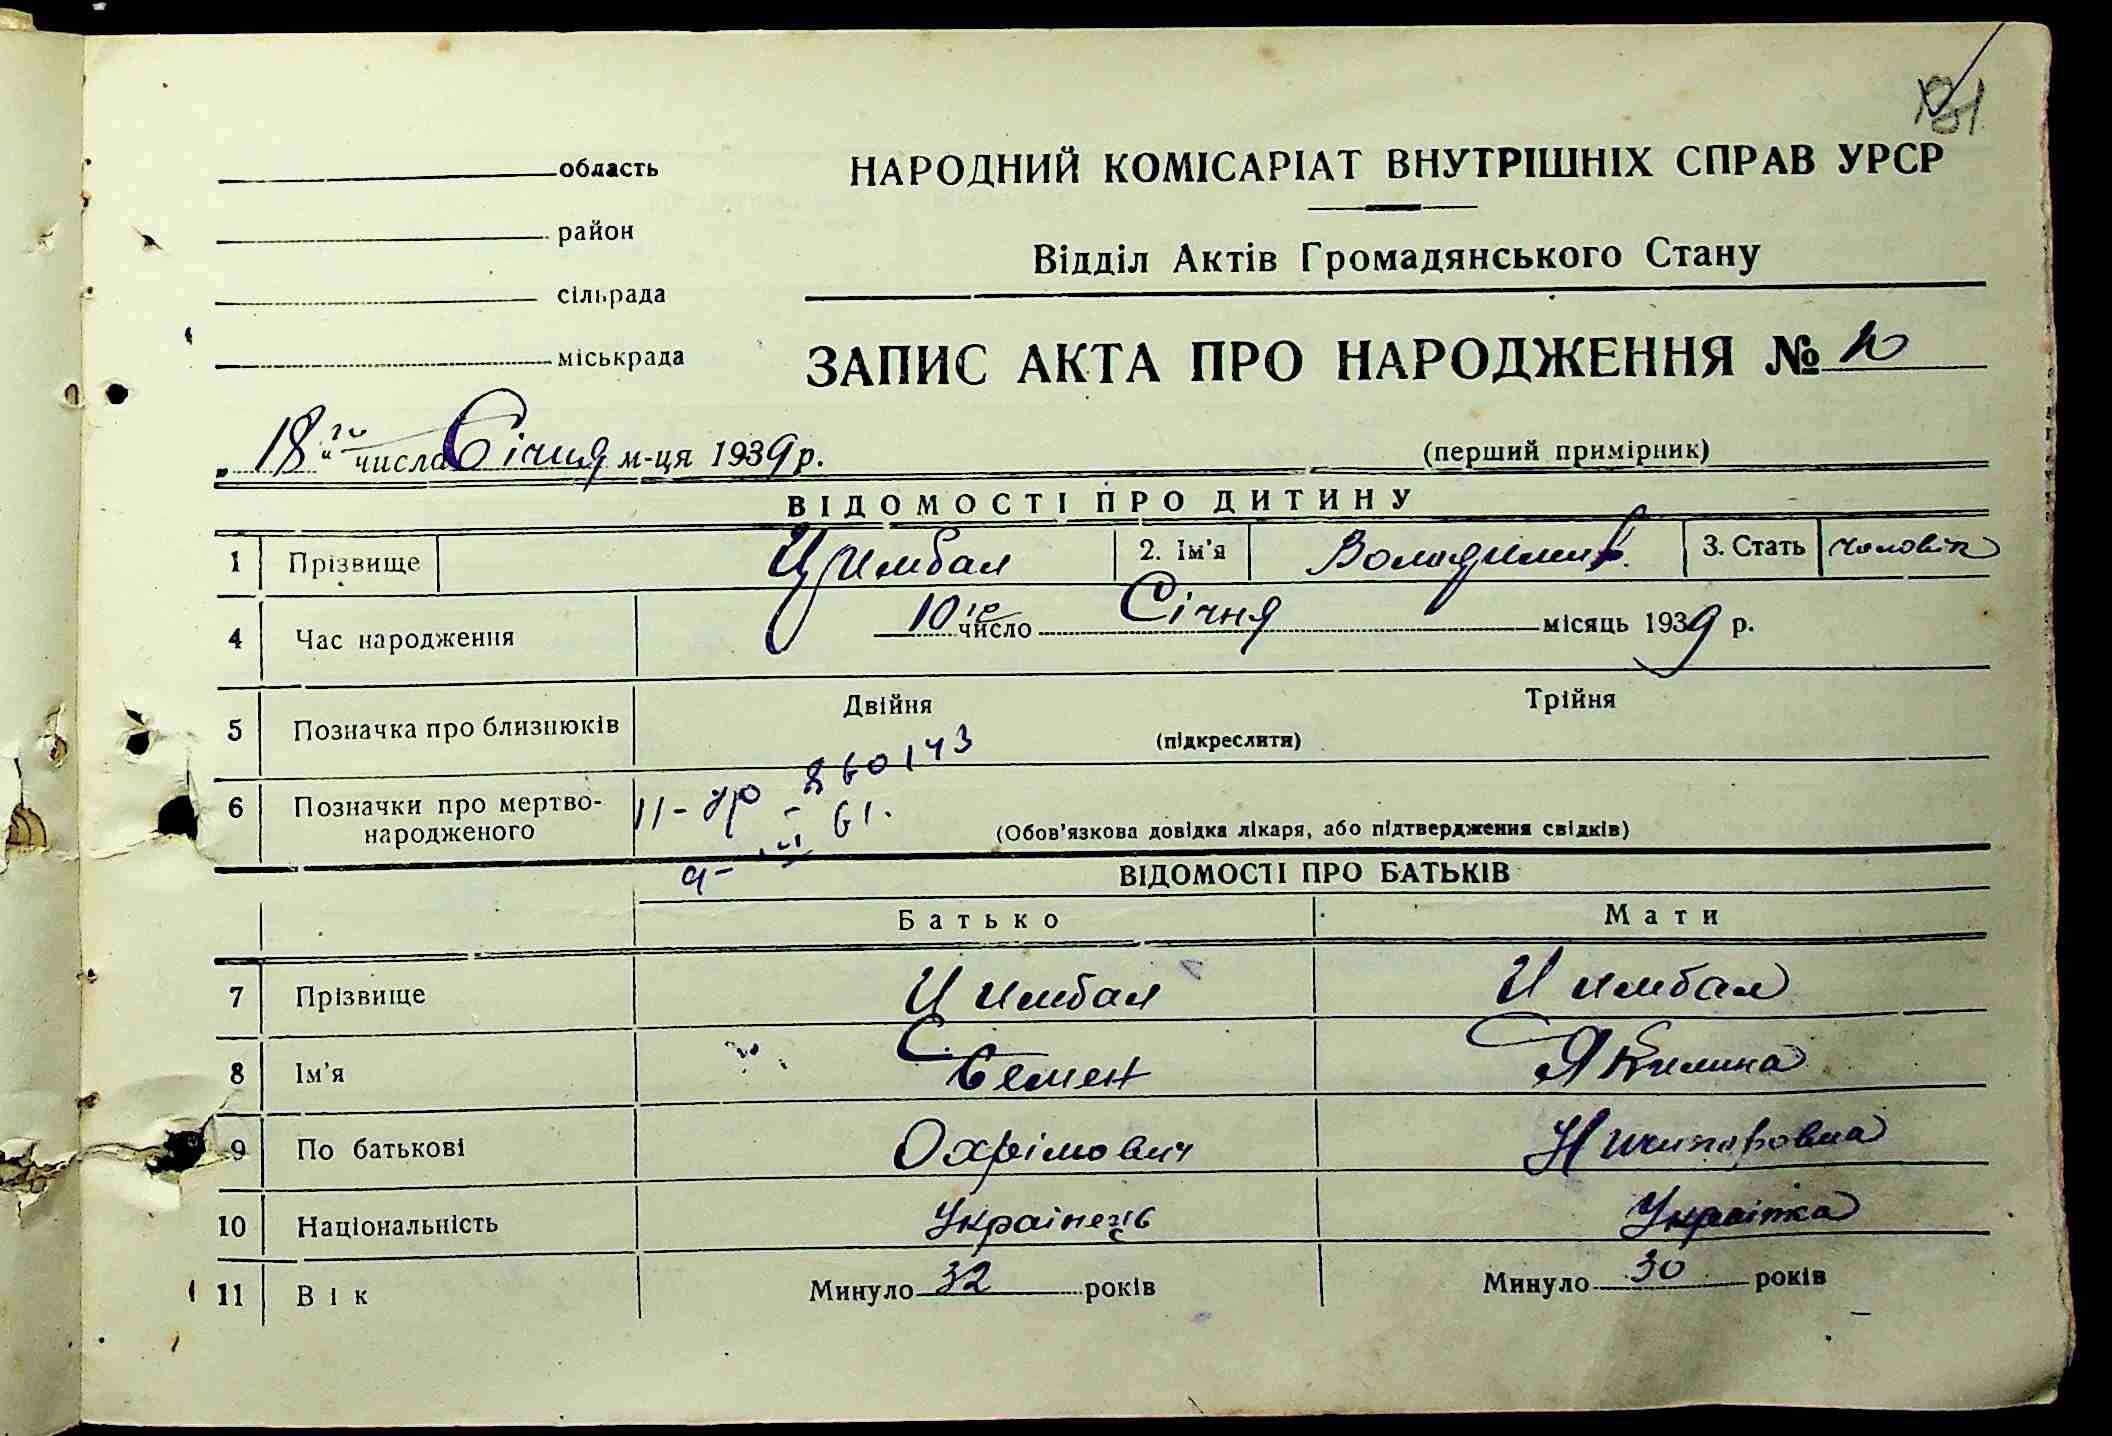 область
НАРОДНИЙ КОМІСАРІАТ ВНУТРІШНІХ СПРАВ УРСР
район
Відділ Актів Громадянського Стану
сільрада
міськрада
ЗАПИС АКТА ПРО НАРОДЖЕННЯ № 10
„18го“ числа Січня м-ця 1939 р.
(перший примірник)
ВІДОМОСТІ ПРО ДИТИНУ
1 Прізвище Цимбал 2. Ім'я Володимир. 3. Стать чоловік
4 Час народження 10го число Січня місяць 1939 р.
5 Позначка про близнюків Двійня Трійня
(підкреслити)
6 Позначки про мертво-
народженого
(Обов'язкова довідка лікаря, або підтвердження свідків)
860143
61.
ВІДОМОСТІ ПРО БАТЬКІВ
Батько Мати
7 Прізвище Цимбал Цимбал
8 Ім'я Семен Якилина
9 По батькові Охрімович Ничипоровна
10 Національність Українець Українка
11 Вік Минуло 32 років Минуло 30 років